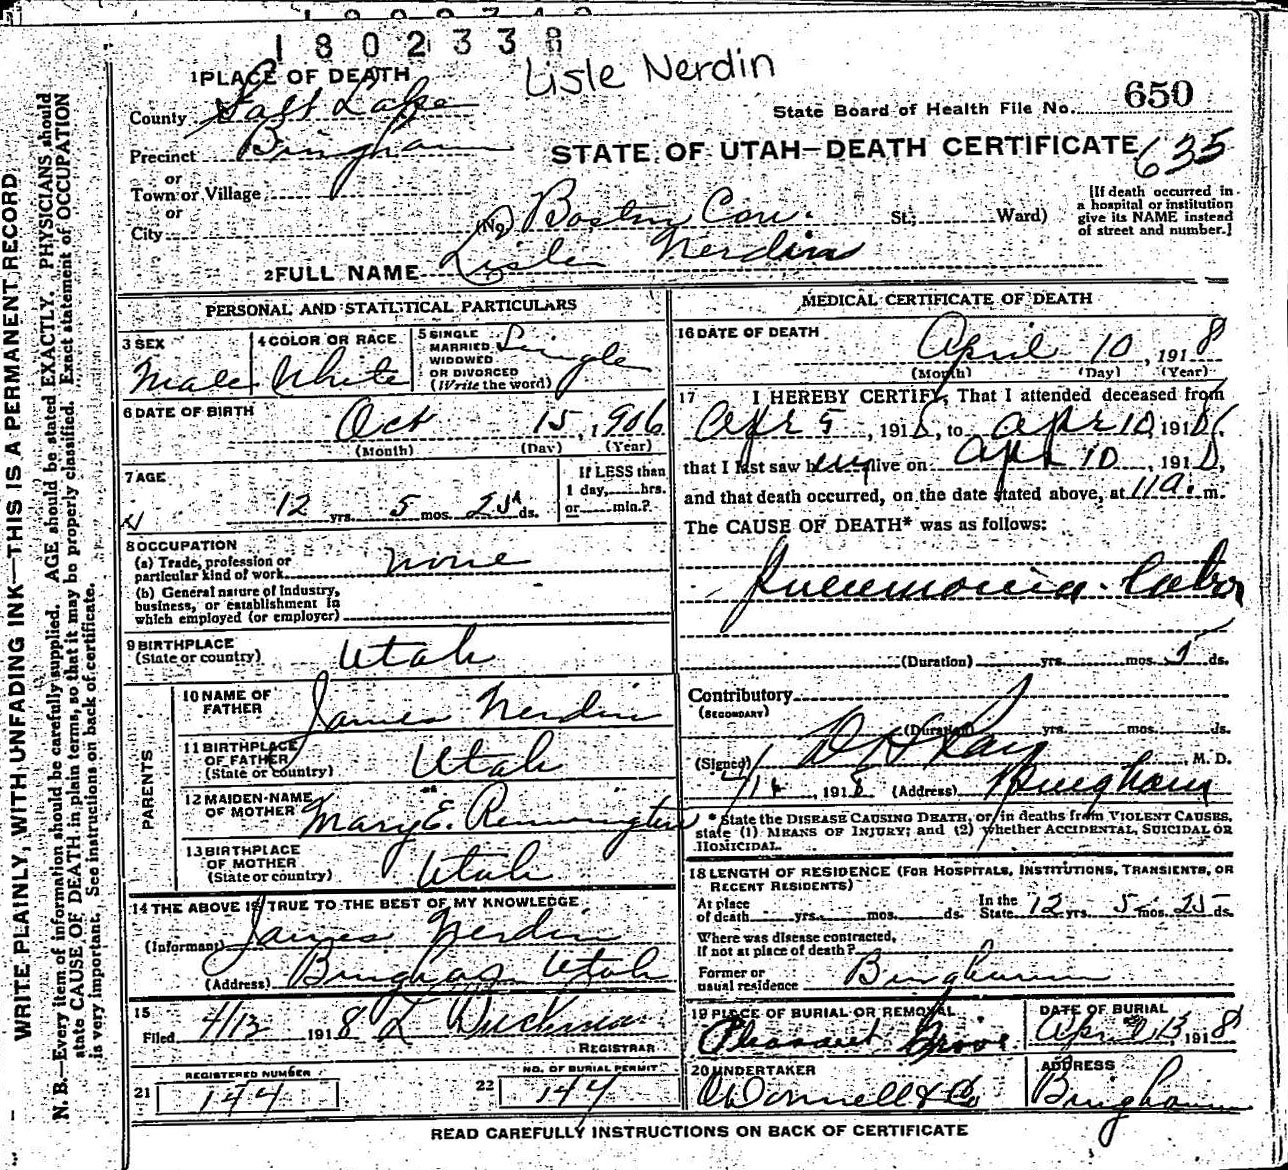 1802338
Lisle Nerdin
1 PLACE OF DEATH
County Salt Lake
State Board of Health File No. 650
Precinct Bingham
STATE OF UTAH—DEATH CERTIFICATE 635
or
Town or Village
or
City
(No) Boston Con. St.; Ward)
[If death occurred in
a hospital or institution
give its NAME instead
of street and number.]
2 FULL NAME Lisle Nerdin
PERSONAL AND STATISTICAL PARTICULARS
3 SEX
Male
4 COLOR OR RACE
White
5 SINGLE
MARRIED,
WIDOWED
OR DIVORCED
(Write the word)
Single
6 DATE OF BIRTH
Oct 15, 1906
(Month) (Day) (Year)
7 AGE
12 yrs. 5 mos. 25 ds.
If LESS than
1 day, hrs.
or min.?
8 OCCUPATION
(a) Trade, profession or
particular kind of work none
(b) General nature of Industry,
business, or establishment in
which employed (or employer)
9 BIRTHPLACE
(State or country) Utah
PARENTS
10 NAME OF
FATHER James Nerdin
11 BIRTHPLACE
OF FATHER
(State or country) Utah
12 MAIDEN-NAME
OF MOTHER Mary E. Remington
13 BIRTHPLACE
OF MOTHER
(State or country) Utah
14 THE ABOVE IS TRUE TO THE BEST OF MY KNOWLEDGE
(Informant) James Nerdin
(Address) Bingham Utah
15
Filed 4/13 1918 L
REGISTRAR
21 REGISTERED NUMBER
144
22 NO. OF BURIAL PERMIT
144
MEDICAL CERTIFICATE OF DEATH
16 DATE OF DEATH
April 10, 1918
(Month) (Day) (Year)
17 I HEREBY CERTIFY, That I attended deceased from
Apr 5, 1918, to Apr 10, 1918,
that I last saw him alive on Apr 10, 1918,
and that death occurred, on the date stated above, at 11 a. m.
The CAUSE OF DEATH* was as follows:
Pneumonia - Lobar
(Duration) yrs. mos. 5 ds.
Contributory
(SECONDARY)
(Duration) yrs. mos. ds.
(Signed) D H Ray, M. D.
, 1918 (Address) Bingham
* State the DISEASE CAUSING DEATH, or in deaths from VIOLENT CAUSES,
state (1) MEANS OF INJURY; and (2) whether ACCIDENTAL, SUICIDAL OR
HOMICIDAL.
18 LENGTH OF RESIDENCE (FOR HOSPITALS, INSTITUTIONS, TRANSIENTS, OR
RECENT RESIDENTS)
At place
of death yrs. mos. ds.
In the
State 12 yrs. 5 mos. 25 ds.
Where was disease contracted,
if not at place of death?
Former or
usual residence Bingham
19 PLACE OF BURIAL OR REMOVAL
Pleasant Grove
DATE OF BURIAL
Apr 13, 1918
20 UNDERTAKER
O'Donnell & Co
ADDRESS
Bingham
READ CAREFULLY INSTRUCTIONS ON BACK OF CERTIFICATE
WRITE PLAINLY, WITH UNFADING INK—THIS IS A PERMANENT RECORD
N. B.—Every item of information should be carefully supplied. AGE should be stated EXACTLY. PHYSICIANS should
state CAUSE OF DEATH in plain terms, so that it may be properly classified. Exact statement of OCCUPATION
is very important. See instructions on back of certificate.